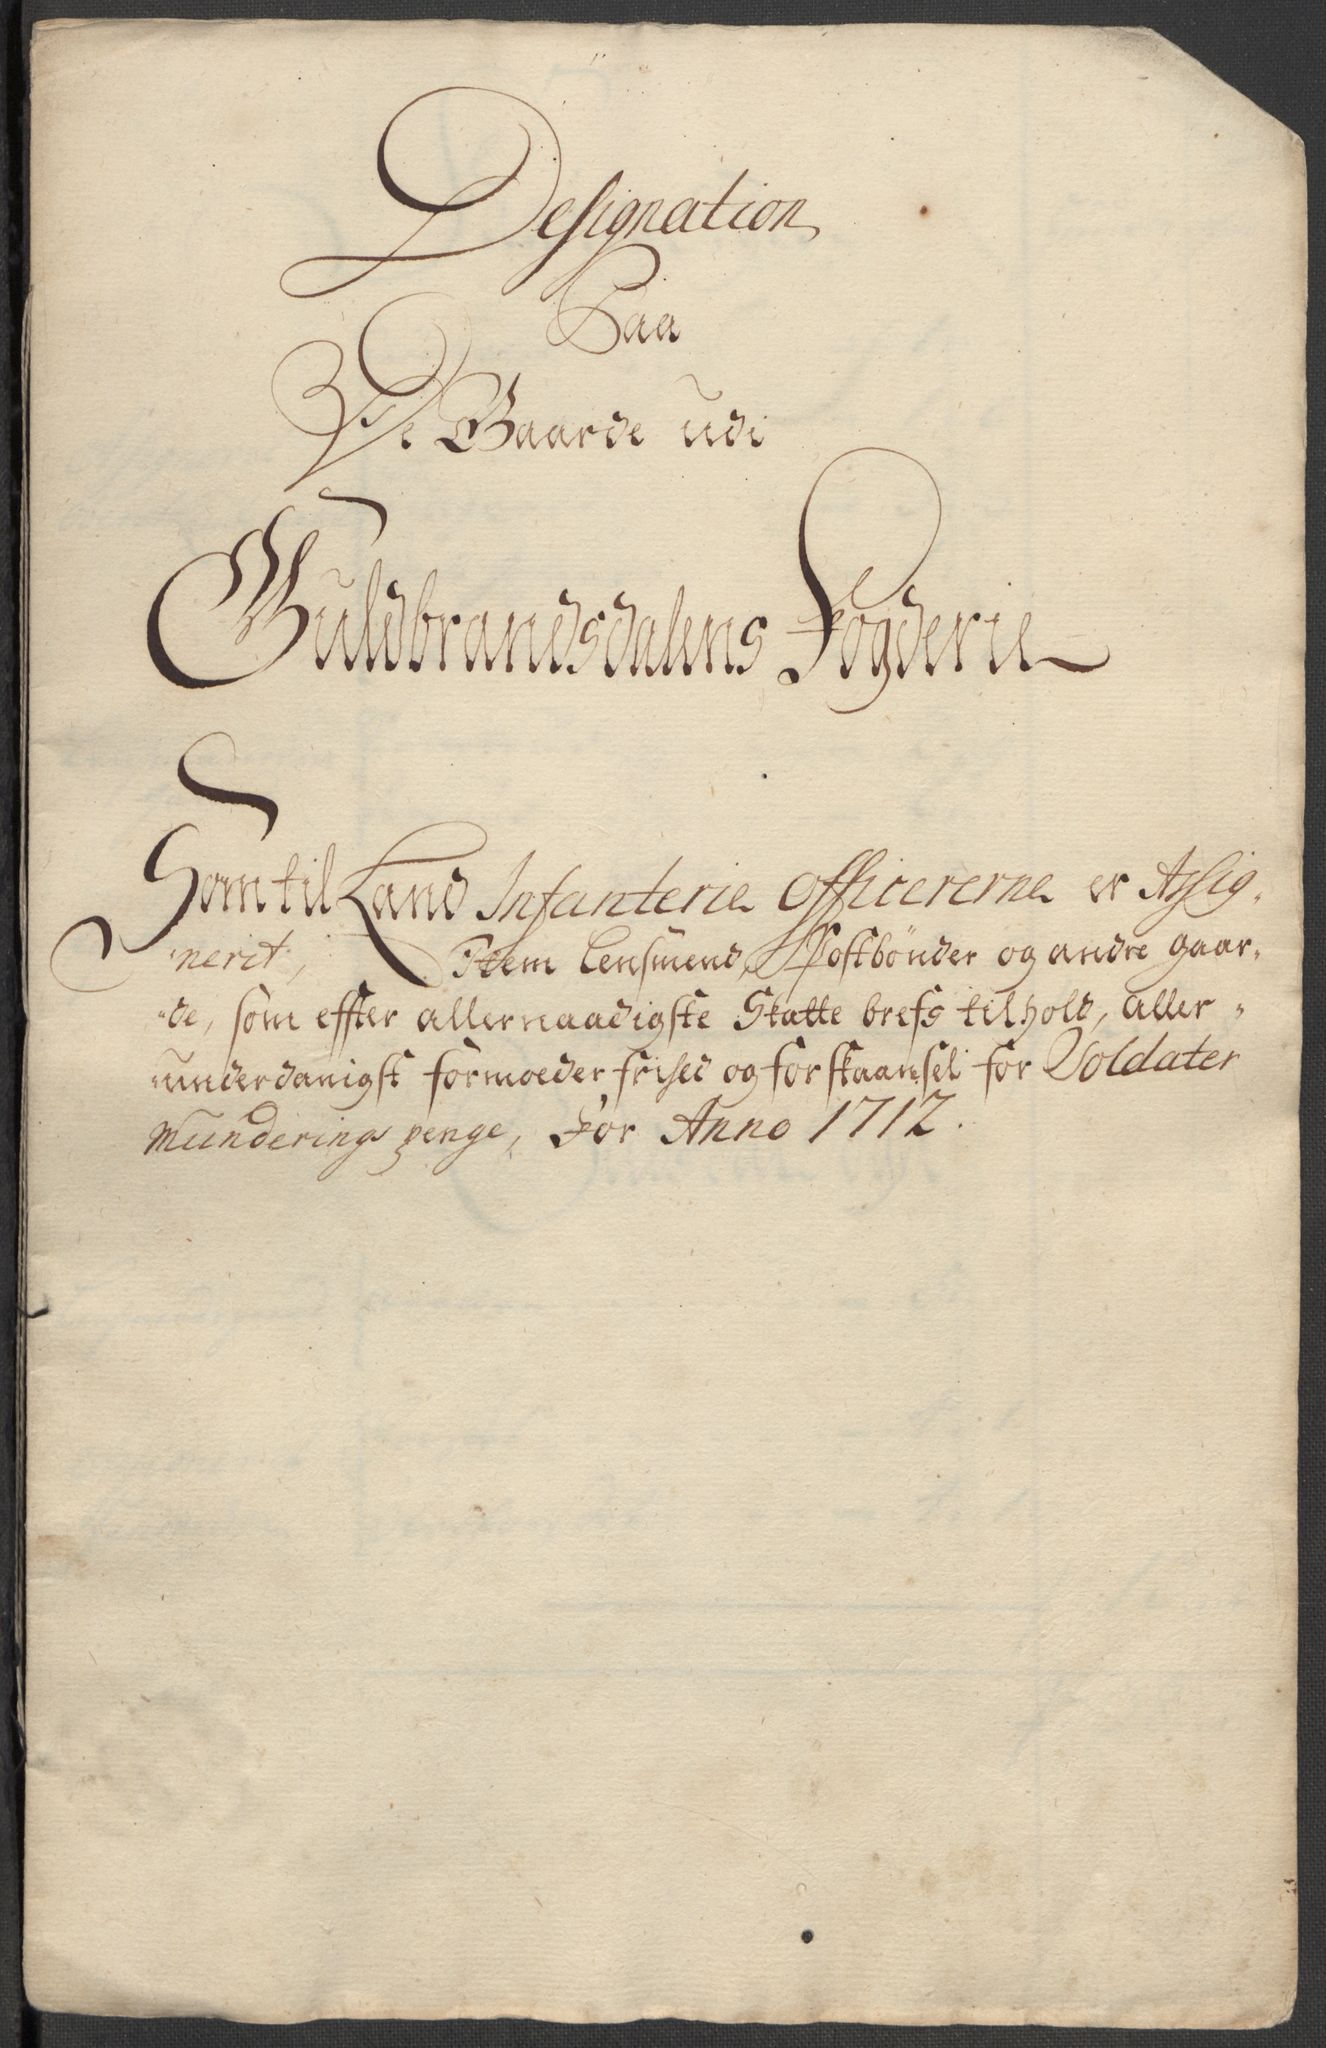 Designation
Paa
De Gaarde udi
Guldbrandsdalens Fogderie
Som til Land Infanterie Officererne er Assig-
nerit, Item Lensmend, Postbønder og andre gaar-
de, som effter allernaadigste Skatte brefs tilhold, aller-
underdanigst formoeder frihed og forskaansel for Soldater
Munderings penge, For Anno 1712.